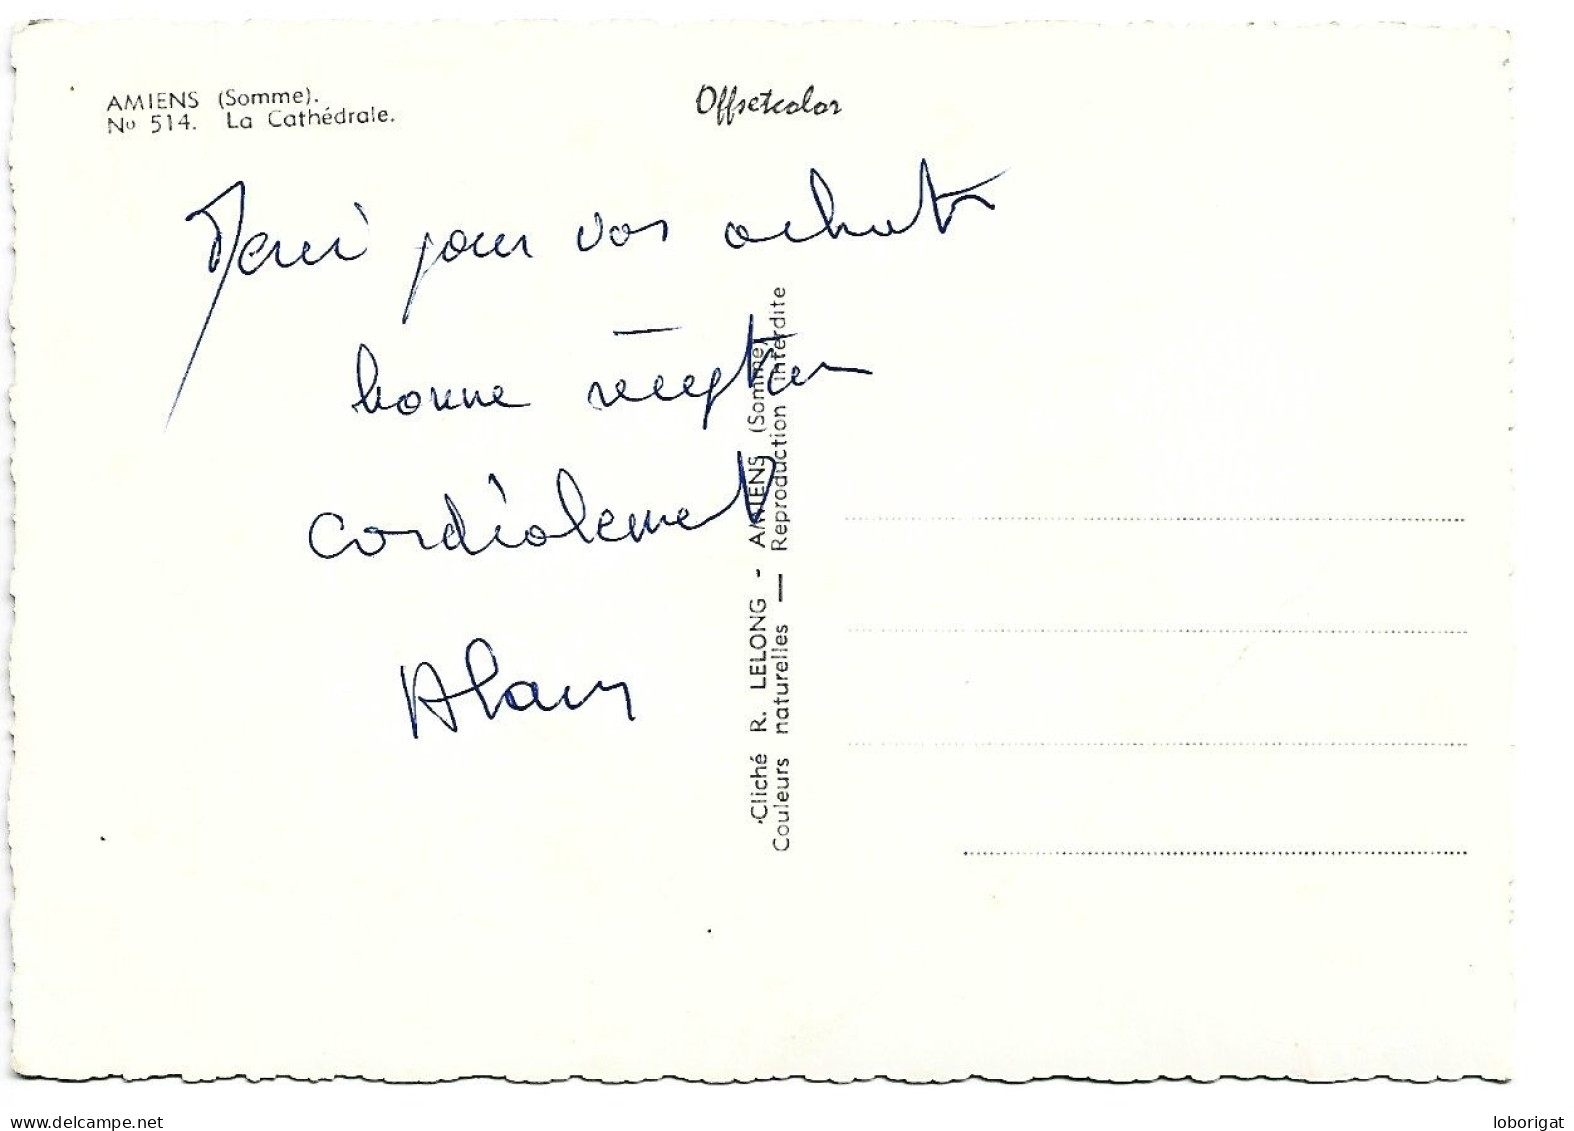 AMIENS (Somme).
No 514. La Cathédrale.
Offsetcolor
Merci pour vos achats
bonne réception
cordialement
Alain
Cliché R. LELONG - AMIENS (Somme)
Couleurs naturelles — Reproduction interdite
www.delcampe.net
loborigat